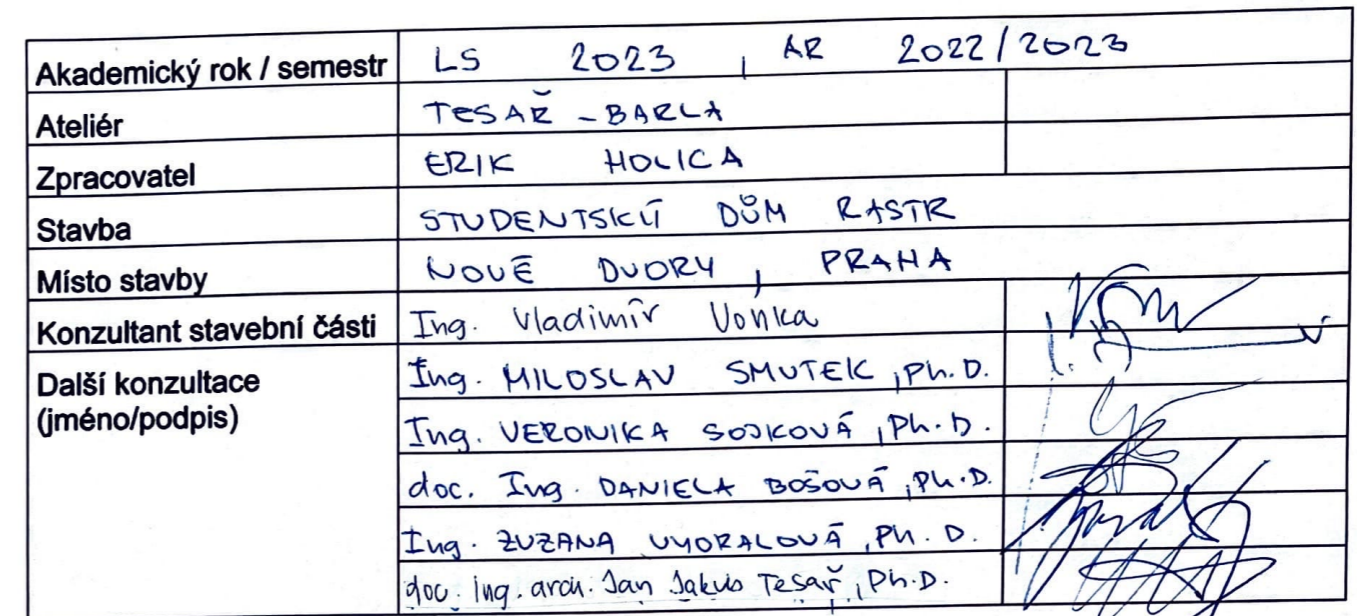 Akademický rok / semestr LS 2023, AR 2022/2023
Ateliér TESAŘ - BARLA
Zpracovatel ERIK HOLICA
Stavba STUDENTSKÝ DŮM RASTR
Místo stavby NOVÉ DVORY, PRAHA
Konzultant stavební části Ing. Vladimír Vonka
Další konzultace Ing. MILOSLAV SMUTEK, Ph.D.
(jméno/podpis) Ing. VERONIKA SOJKOVÁ, Ph.D.
doc. Ing. DANIELA BOŠOVÁ, Ph.D.
Ing. ZUZANA VYORALOVÁ, Ph.D.
doc. Ing. arch. Jan Jakub Tesař, Ph.D.